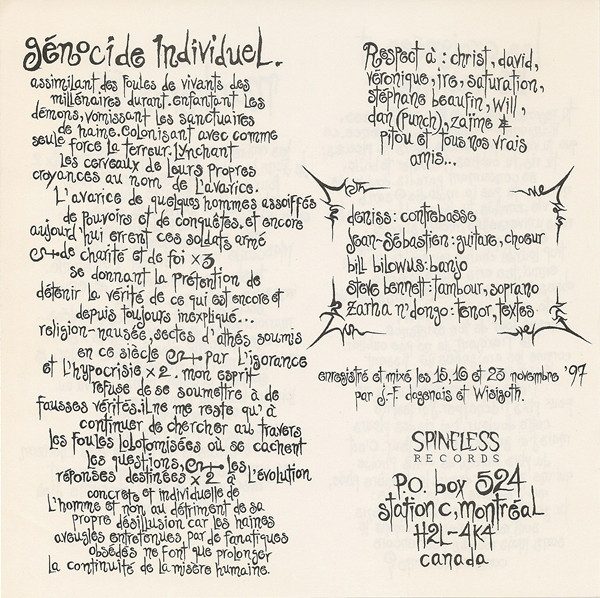 génocide individuel.
assimilant des foules de vivants des
millénaires durant. enfantant les
démons, vomissant les sanctuaires
de haine. colonisant avec comme
seule force la terreur. Lynchant
les cerveaux de leurs propres
croyances au nom de l'avarice.
L'avarice de quelques hommes assoiffés
de pouvoirs et de conquêtes. et encore
aujourd'hui errent ces soldats armé
de charité et de foi x3
se donnant la prétention de
détenir la vérité de ce qui est encore et
depuis toujours inexpliqué...
religion-nausée, sectes d'athés soumis
en ce siècle par l'ignorance
et l'hypocrisie x2. mon esprit
refuse de se soumettre à de
fausses vérités. il ne me reste qu'à
continuer de chercher au travers
les foules lobotomisées où se cachent
les questions, les
réponses destinées x2 à l'évolution
concrète et individuelle de
l'homme et non au détriment de sa
propre désillusion car les haines
aveugles entretenues par de fanatiques
obsédés ne font que prolonger
la continuité de la misère humaine.
Respect à : christ, david,
véronique, jre, saturation,
stéphane beaufin, will,
dan (punch), zaïme &
pitou et tous nos vrais
amis...
deniss: contrebasse
jean-sébastien: guitare, choeur
bill bilowus: banjo
steve bennett: tambour, soprano
zarha n'dongo: tenor, textes
enregistré et mixé les 15, 16 et 23 novembre '97
par J.-F dagenais et Wisigoth.
SPINELESS
RECORDS
P.O. box 524
station C, montréal
H2L-4K4
canada